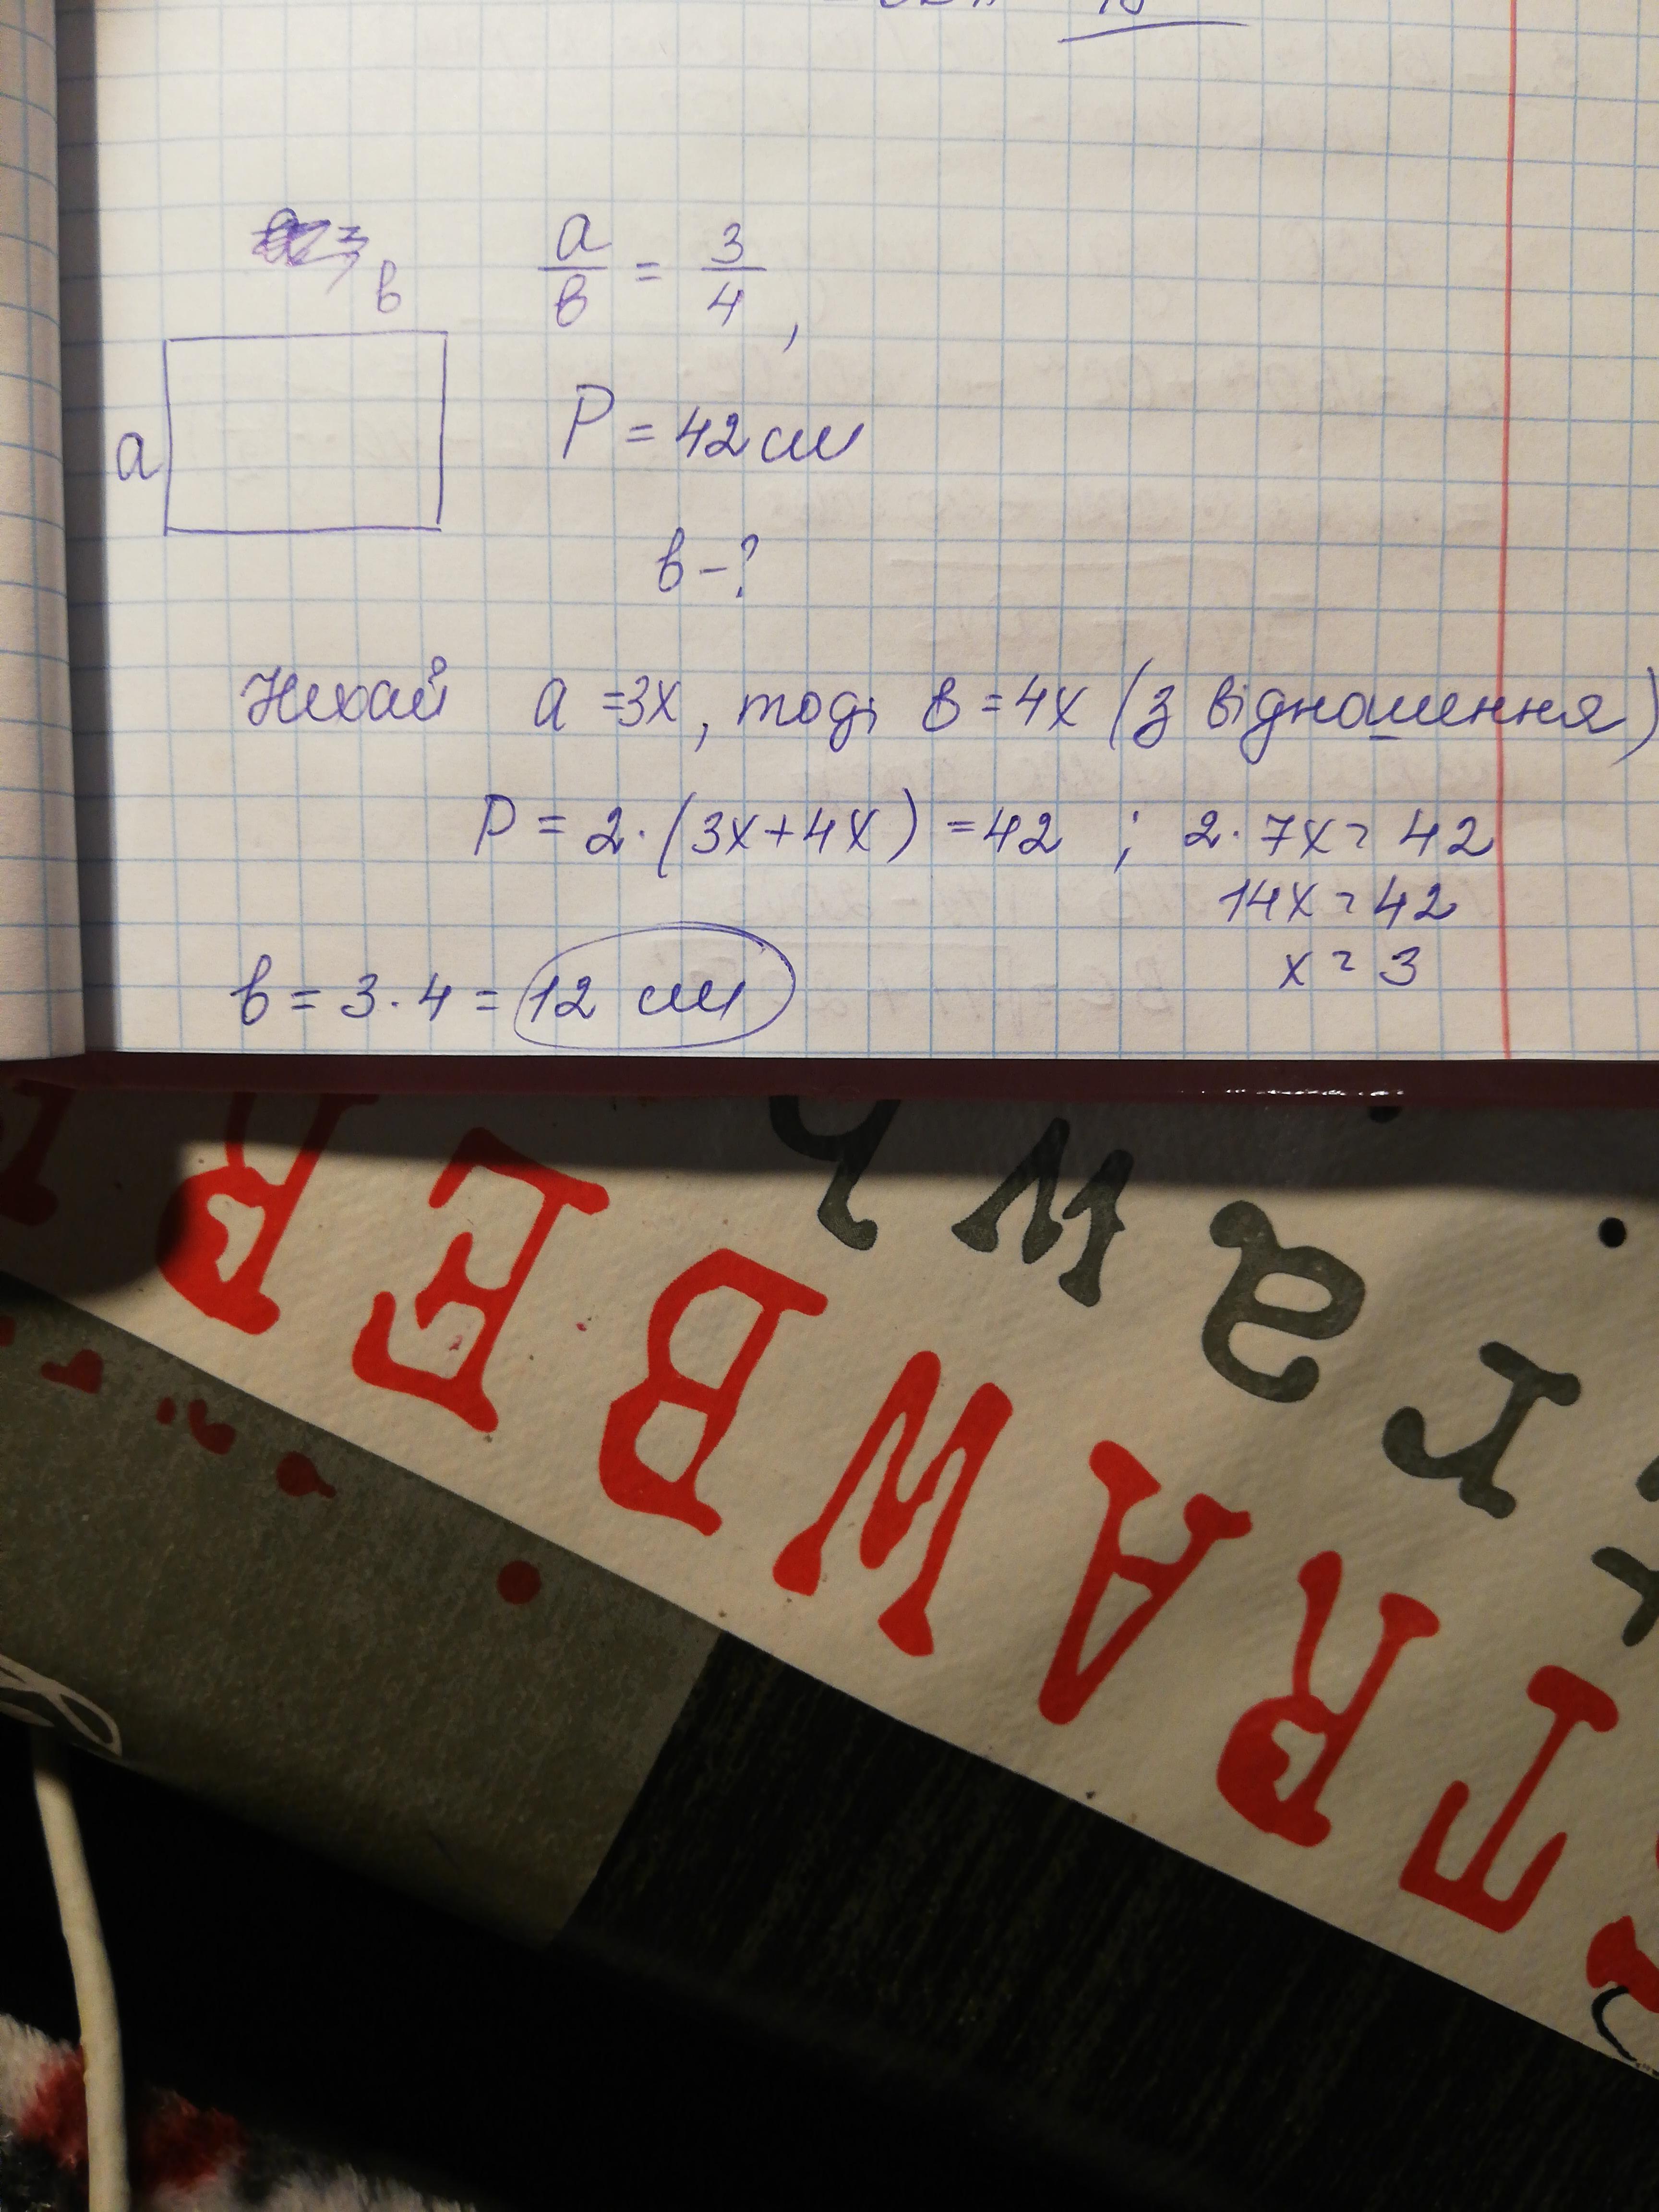 в
a/в = 3/4,
a
P = 42 см
в - ?
Нехай a = 3x, тоді в = 4x (з відношення)
P = 2·(3x+4x) = 42 ; 2·7x = 42
14x = 42
x = 3
в = 3·4 = 12 см
STRAWBERR